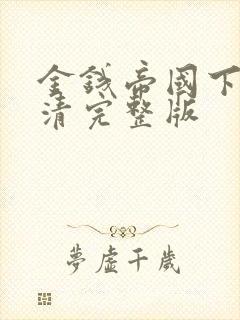 金錢帝國下
清完整版
夢虛千歲